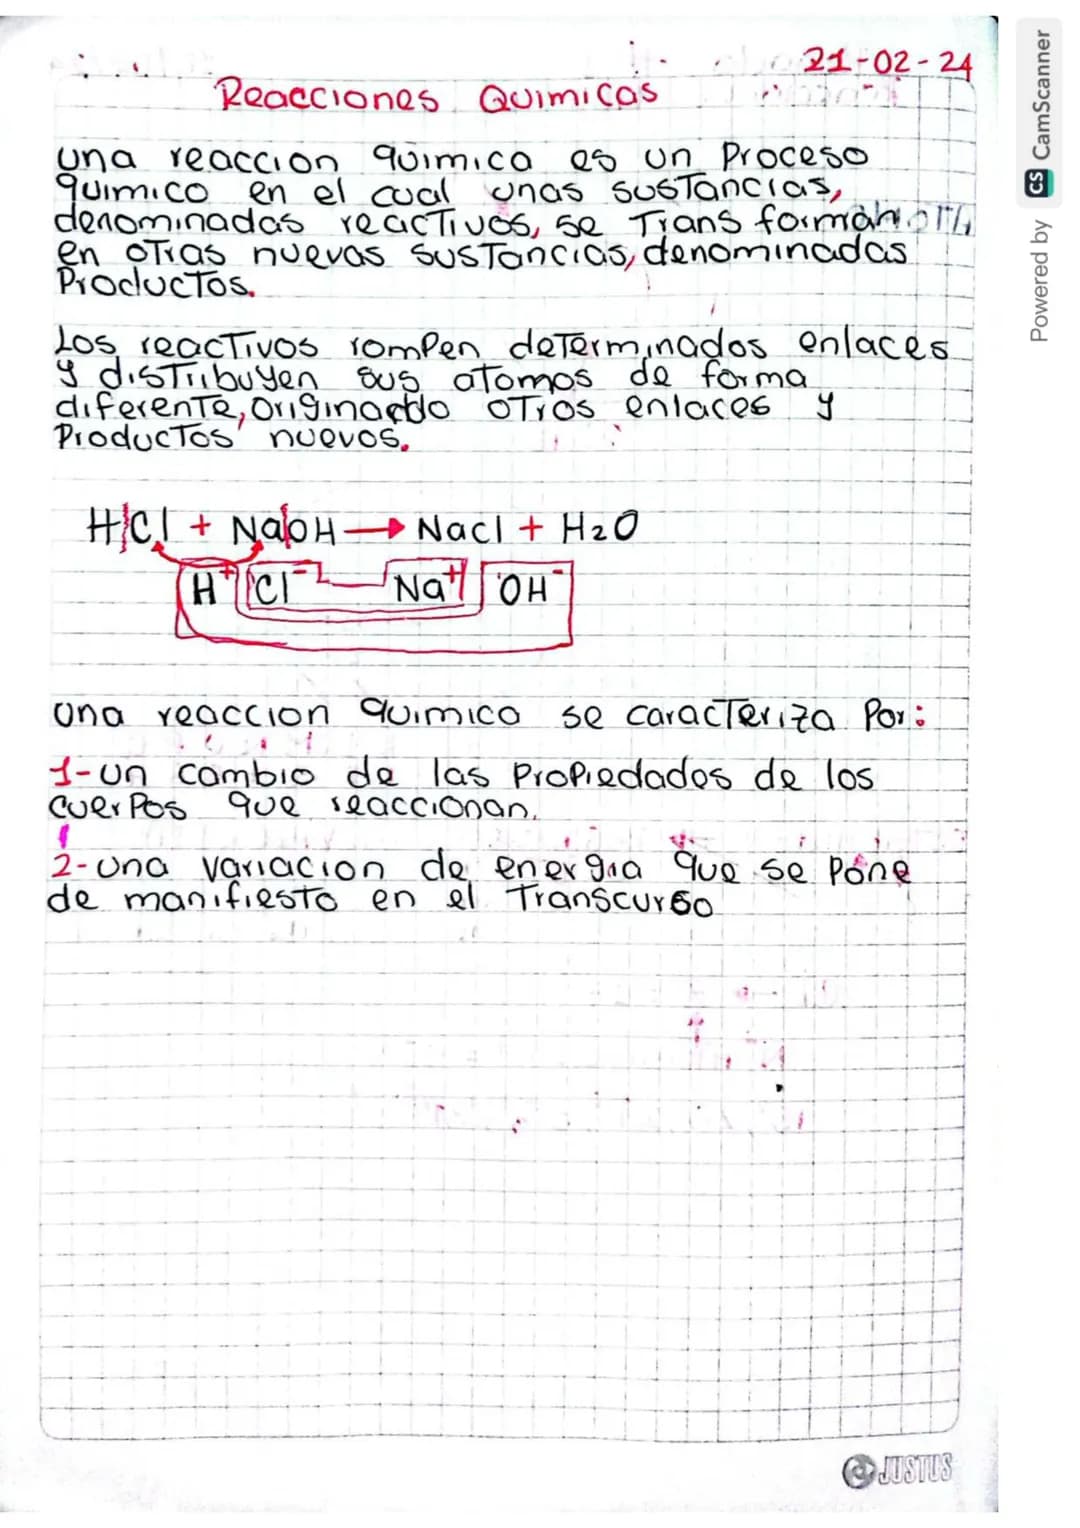 21-02-24
Reacciones Quimicas
una reaccion quimica es un Proceso
quimico en el cual unas sustancias,
denominadas reactivos, se Trans forman
en otras nuevas sustancias, denominadas
Productos.
Los reactivos rompen determinados enlaces
y distribuyen sus atomos de forma
diferente, originando otros enlaces y
Productos nuevos.
HCl + NaOH → Nacl + H2O
H+ Cl- Na+ OH-
una reaccion quimica se caracteriza Por:
1-un cambio de las Propiedades de los
cuerpos que reaccionan.
2-una variacion de energia que se pone
de manifiesto en el Transcurso
JUSTUS
Powered by CS CamScanner